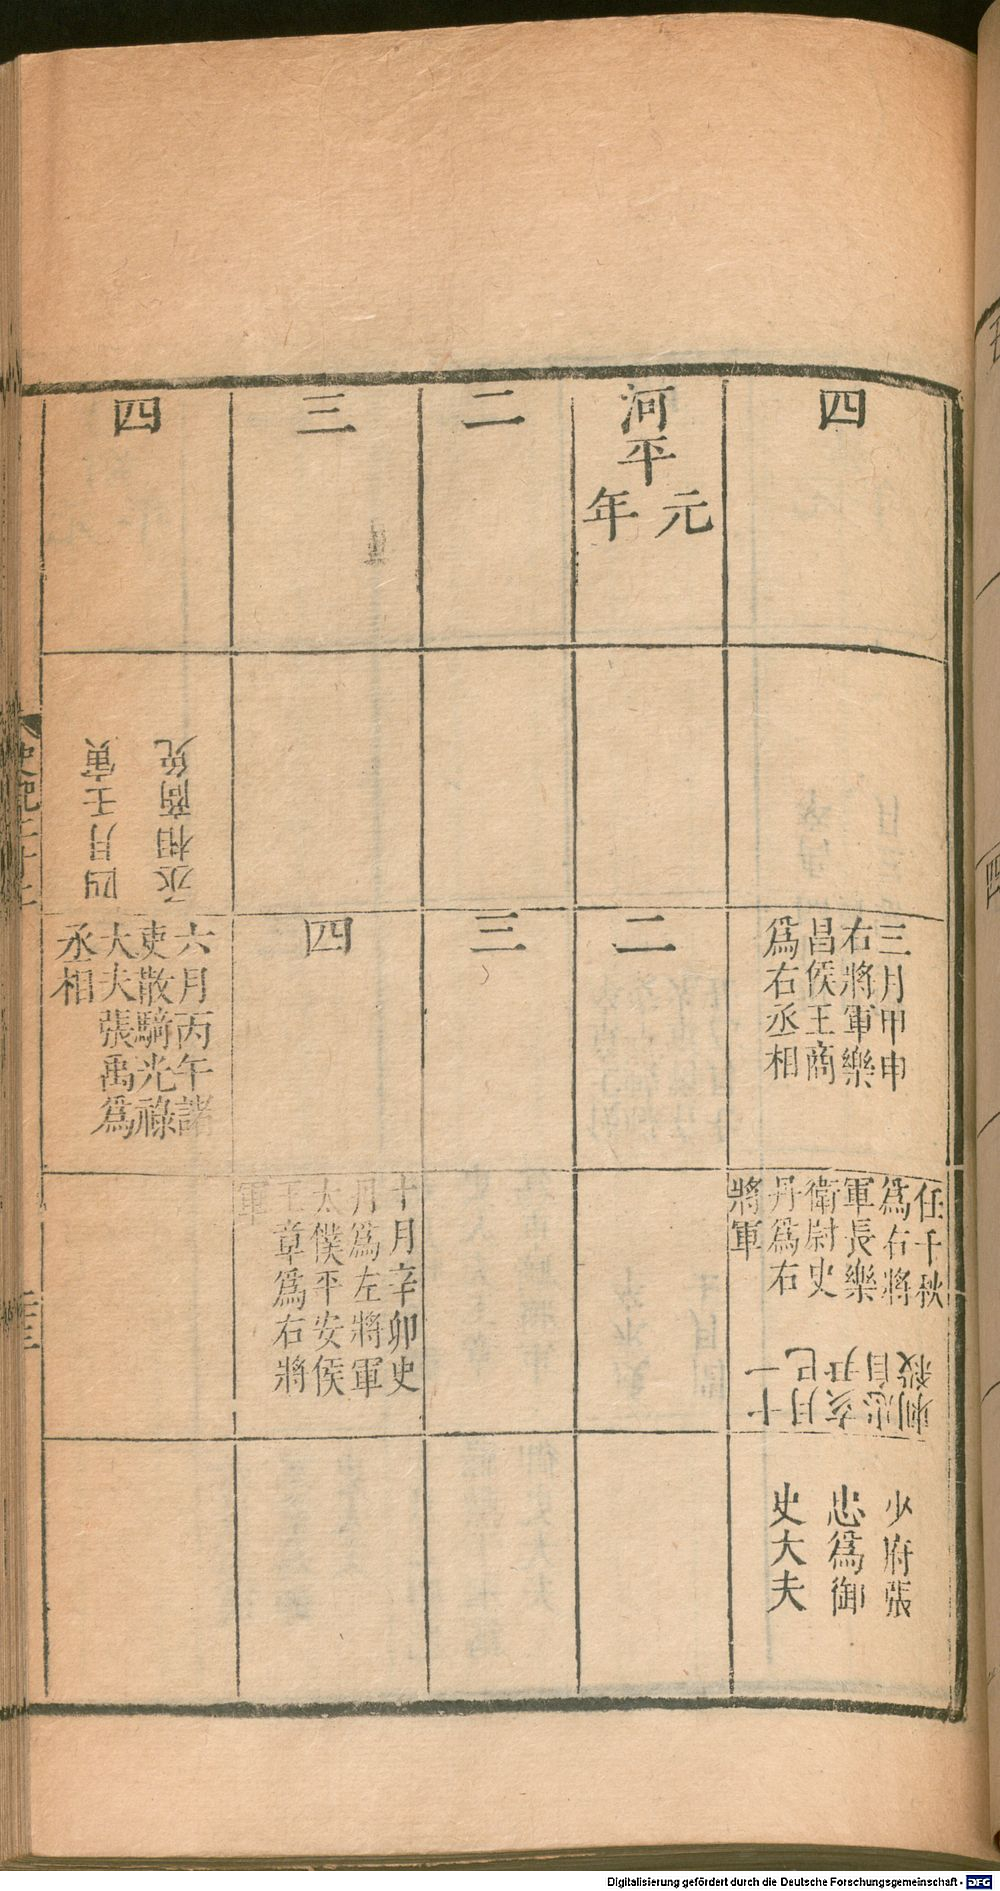 四
三月甲申
右將軍樂
昌侯王商
爲右丞相
任千秋
爲右將
軍長樂
衛尉史
丹爲右
將軍
十一
月巳
亥尹
忠自
刺殺
少府張
忠爲御
史大夫
河平
元
年
二
二
三
三
四
十月辛卯史
丹爲左將軍
太僕平安侯
王章爲右將
軍
四
四月壬寅
丞相商免
六月丙午諸
吏散騎光祿
大夫張禹爲
丞相
Digitalisierung gefördert durch die Deutsche Forschungsgemeinschaft - DFG